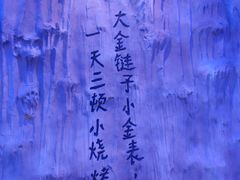 大金链子小金表，
一天三顿小烧烤